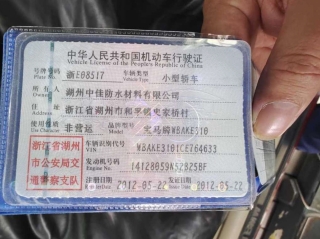 中华人民共和国机动车行驶证
Vehicle License of the People's Republic of China
号牌号码 浙E08517 车辆类型 小型轿车
所有人 湖州中佳防水材料有限公司
住址 浙江省湖州市和孚镇史家桥村
使用性质 非营运 品牌型号 宝马牌WBAKE310
浙江省湖州市公安局交通警察支队
车辆识别代号 VIN WBAKE3101CE764633
发动机号码 Engine No.
注册日期 2012-05-22 发证日期 2012-05-22